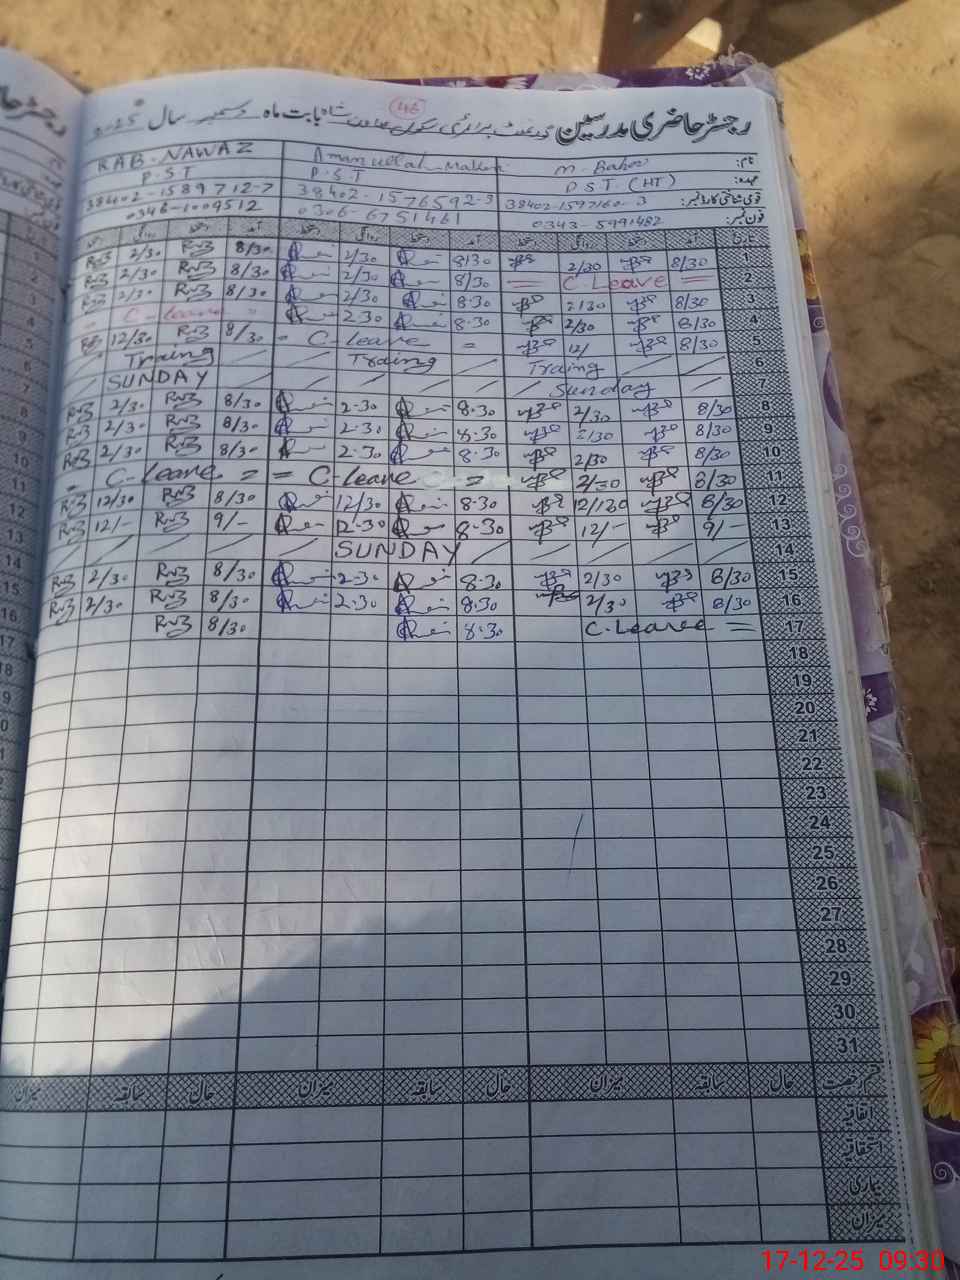 رجسٹر حاضری مدرسین گورنمنٹ پرائمری سکول شاہ بابت ماہ دسمبر سال 2025
46
نام: M. Baher Amanullah Malken RAB.NAWAZ
عہدہ: P.S.T. (HT) P.S.T P.S.T
قومی شناختی کارڈ نمبر: 38402-1597160-3 38402-1576592-3 38402-1589712-7
فون نمبر: 0343-5991482 0306-6751461 0346-1009512
تاریخ آمد دستخط روانگی دستخط آمد دستخط روانگی دستخط آمد دستخط روانگی دستخط
1 8/30 2/30 8/30 2/30 8/30 RNB 2/30 RNB
2 = C Leave = 8/30 2/30 8/30 RNB 2/30 RNB
3 8/30 2/30 8.30 2/30 8/30 RNB 2/30 RNB
4 8/30 2/30 8.30 2.30 = C-leave =
5 8/30 12/ = C-leave = 8/30 RNB 12/30 RNB
6 Traing Traing Traing
7 Sunday SUNDAY
8 8/30 2/30 8.30 2.30 8/30 RNB 2/30 RNB
9 8/30 2/30 8.30 2.30 8/30 RNB 2/30 RNB
10 8/30 2/30 8.30 2.30 8/30 RNB 2/30 RNB
11 8/30 2/30 = C-leave = = C-leave =
12 8/30 12/130 8.30 12/30 8/30 RNB 12/30 RNB
13 9/- 12/- 8.30 12.30 9/- RNB 12/- RNB
14 SUNDAY
15 8/30 2/30 8.30 2.30 8/30 RNB 2/30 RNB
16 8/30 2/30 8.30 2.30 8/30 RNB 2/30 RNB
17 C.Leavee = 8.30 8/30 RNB
18
19
20
21
22
23
24
25
26
27
28
29
30
31
قسم رخصت حال سابقہ میزان حال سابقہ میزان حال سابقہ میزان
اتفاقیہ
استحقاقیہ
بیماری
میزان
17-12-25 09:30